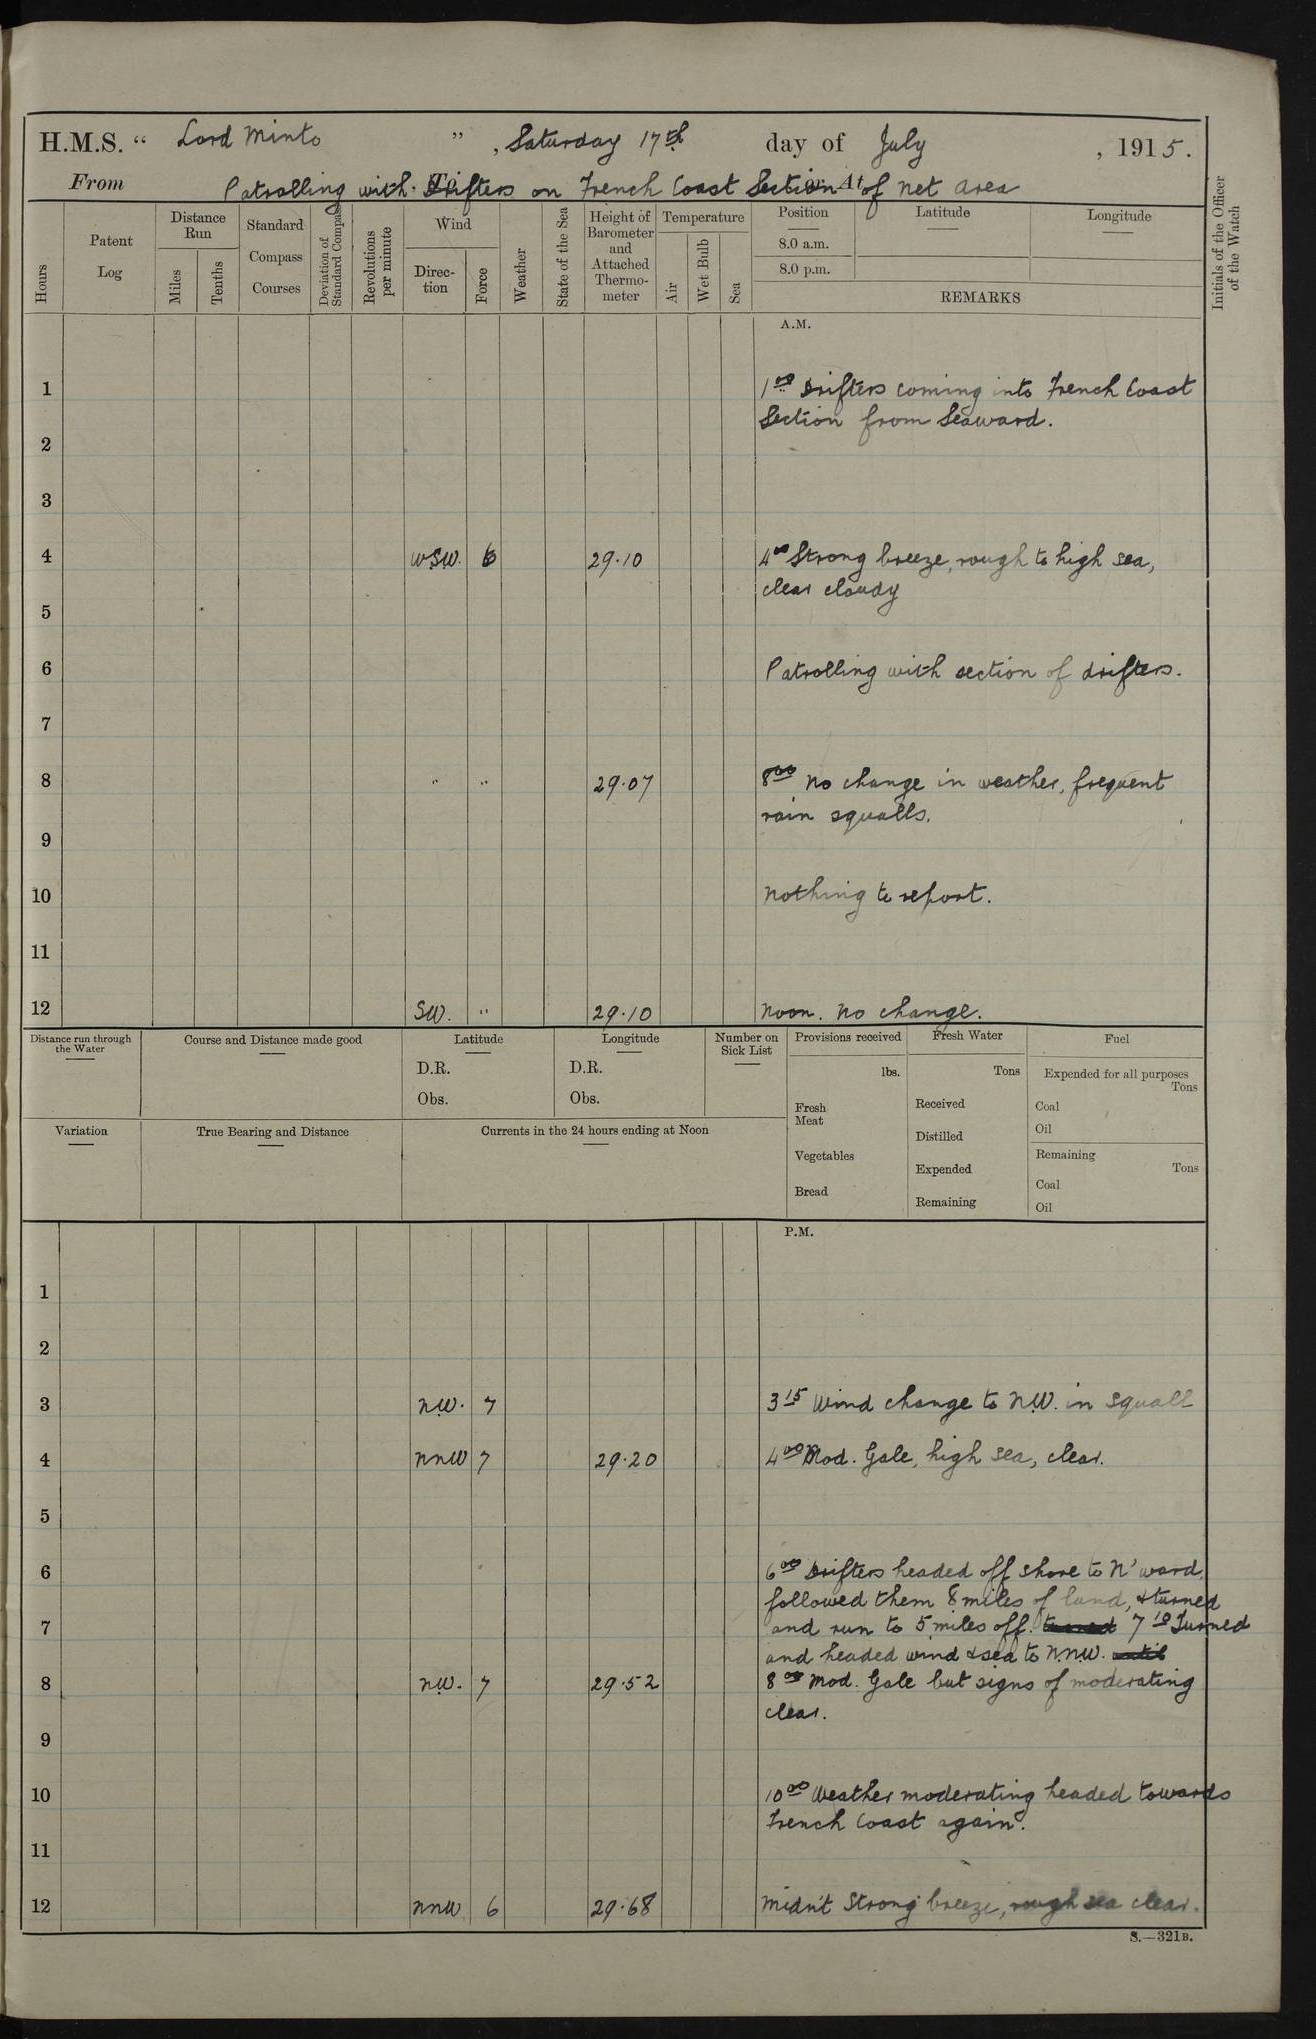 H.M.S. “ Lord Minto ” , Saturday 17th day of July , 1915.
From To or At
Patrolling with Drifters on French Coast Section of net area
Hours
Patent Log
Distance Run
Miles
Tenths
Standard Compass Courses
Deviation of Standard Compass
Revolutions per minute
Wind
Direc-tion
Force
Weather
State of the Sea
Height of Barometer and Attached Thermo-meter
Temperature
Air
Wet Bulb
Sea
Position
8.0 a.m.
8.0 p.m.
Latitude
Longitude
REMARKS
Initials of the Officer of the Watch
A.M.
1 1 00 Drifters coming into French Coast
Section from Seaward.
2
3
4 WSW. 6 29.10 4 00 Strong breeze, rough to high sea,
clear cloudy
5
6 Patrolling with section of drifters.
7
8 " " 29.07 8 00 No change in weather, frequent
rain squalls.
9
10 Nothing to report.
11
12 SW. " 29.10 Noon. No change.
Distance run through the Water
Course and Distance made good
Latitude
D.R.
Obs.
Longitude
D.R.
Obs.
Number on Sick List
Variation
True Bearing and Distance
Currents in the 24 hours ending at Noon
Provisions received
lbs.
Fresh Meat
Vegetables
Bread
Fresh Water
Tons
Received
Distilled
Expended
Remaining
Fuel
Expended for all purposes
Tons
Coal
Oil
Remaining
Tons
Coal
Oil
P.M.
1
2
3 NW. 7 3 15 Wind change to N.W. in squall
4 NNW 7 29.20 4 00 Mod. Gale, high sea, clear.
5
6 6 00 Drifters headed off shore to N'ward,
followed them 8 miles of land, & turned
7 and run to 5 miles off. turned 7 10 Turned
and headed wind & sea to N.N.W. until
8 NW. 7 29.52 8 00 Mod. Gale but signs of moderating
clear.
9
10 10 00 Weather moderating headed towards
French Coast again.
11
12 NNW 6 29.68 Midn't Strong breeze, rough sea clear.
S.—321B.